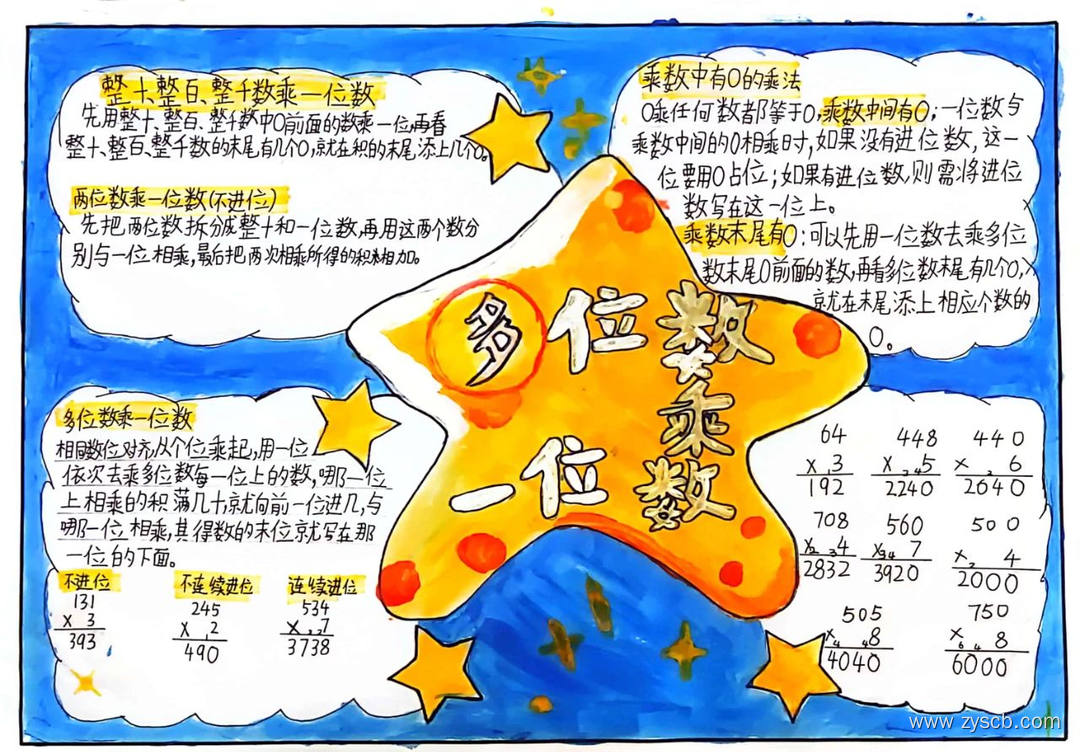 整十、整百、整千数乘一位数
先用整十、整百、整千数中0前面的数乘一位,再看
整十、整百、整千数的末尾有几个0,就在积的末尾添上几个0。
两位数乘一位数(不进位)
先把两位数拆分成整十和一位数,再用这两个数分
别与一位相乘,最后把两次相乘所得的积相加。
乘数中有0的乘法
0乘任何数都等于0,乘数中间有0:一位数与
乘数中间的0相乘时,如果没有进位数,这一
位要用0占位;如果有进位数,则需将进位
数写在这一位上。
乘数末尾有0:可以先用一位数去乘多位
数末尾0前面的数,再看多位数末尾有几个0,
就在末尾添上相应个数的
0。
多位数
乘
一位数
多位数乘一位数
相同数位对齐,从个位乘起,用一位
依次去乘多位数每一位上的数,哪一位
上相乘的积满几十,就向前一位进几,与
哪一位相乘,其得数的末位就写在那
一位的下面。
不进位 不连续进位 连续进位
131 245 534
x 3 x 1 2 x 2 2 7
393 490 3738
64 448 440
x 1 3 x 2 4 5 x 2 6
192 2240 2640
708 560 500
x 2 3 4 x 3 4 7 x 2 4
2832 3920 2000
505 750
x 4 4 8 x 6 4 8
4040 6000
www.zyscb.com